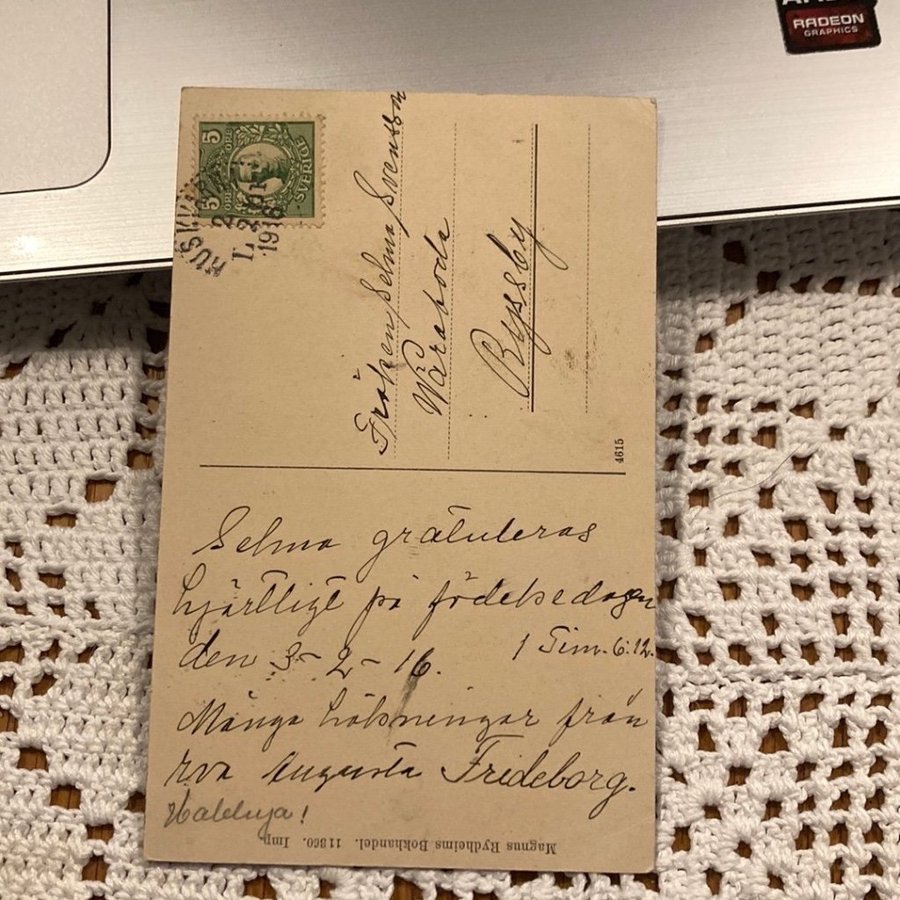 RADEON
GRAPHICS
5 ÖRE 5 ÖRE
SVERIGE
1916
Fröken Selma Svensson
Ryssby
4615
Selma gratuleras
hjärtligt på födelsedagen
den 3-2-16. 1 Tim. 6:12.
Många hälsningar från
Augusta Frideborg.
Halleluja!
Magnus Rydheims Bokhandel. 11860. Imp.